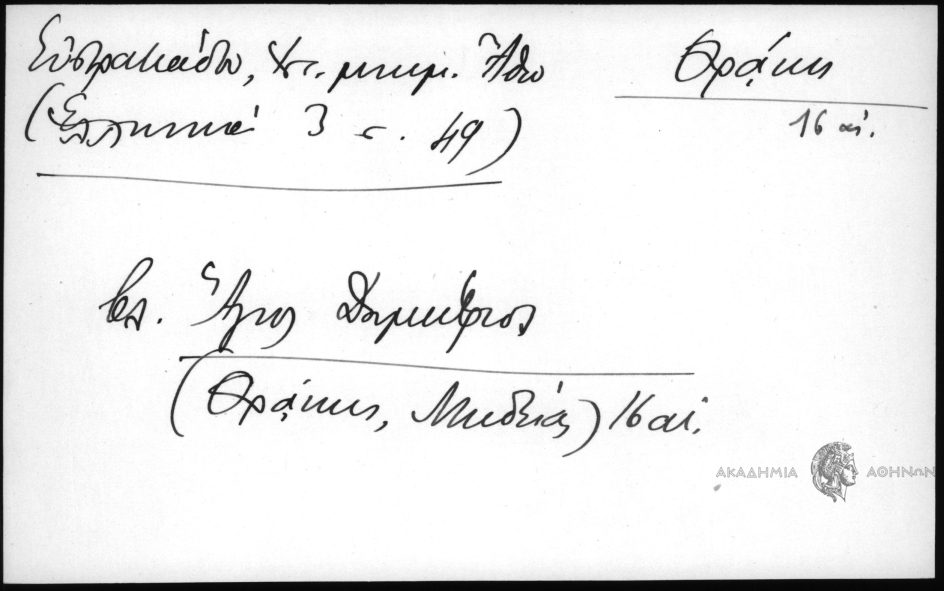 Εὐστρατιάδου, Ἱστ. μνημ. Ἄθω
(Ἑλληνικά 3 σ. 49)
Θρᾴκης
16 αἰ.
βλ. Ἅγιος Δημήτριος
(Θρᾴκης, Μηδείας) 16 αἰ.
ΑΚΑΔΗΜΙΑ ΑΘΗΝΩΝ